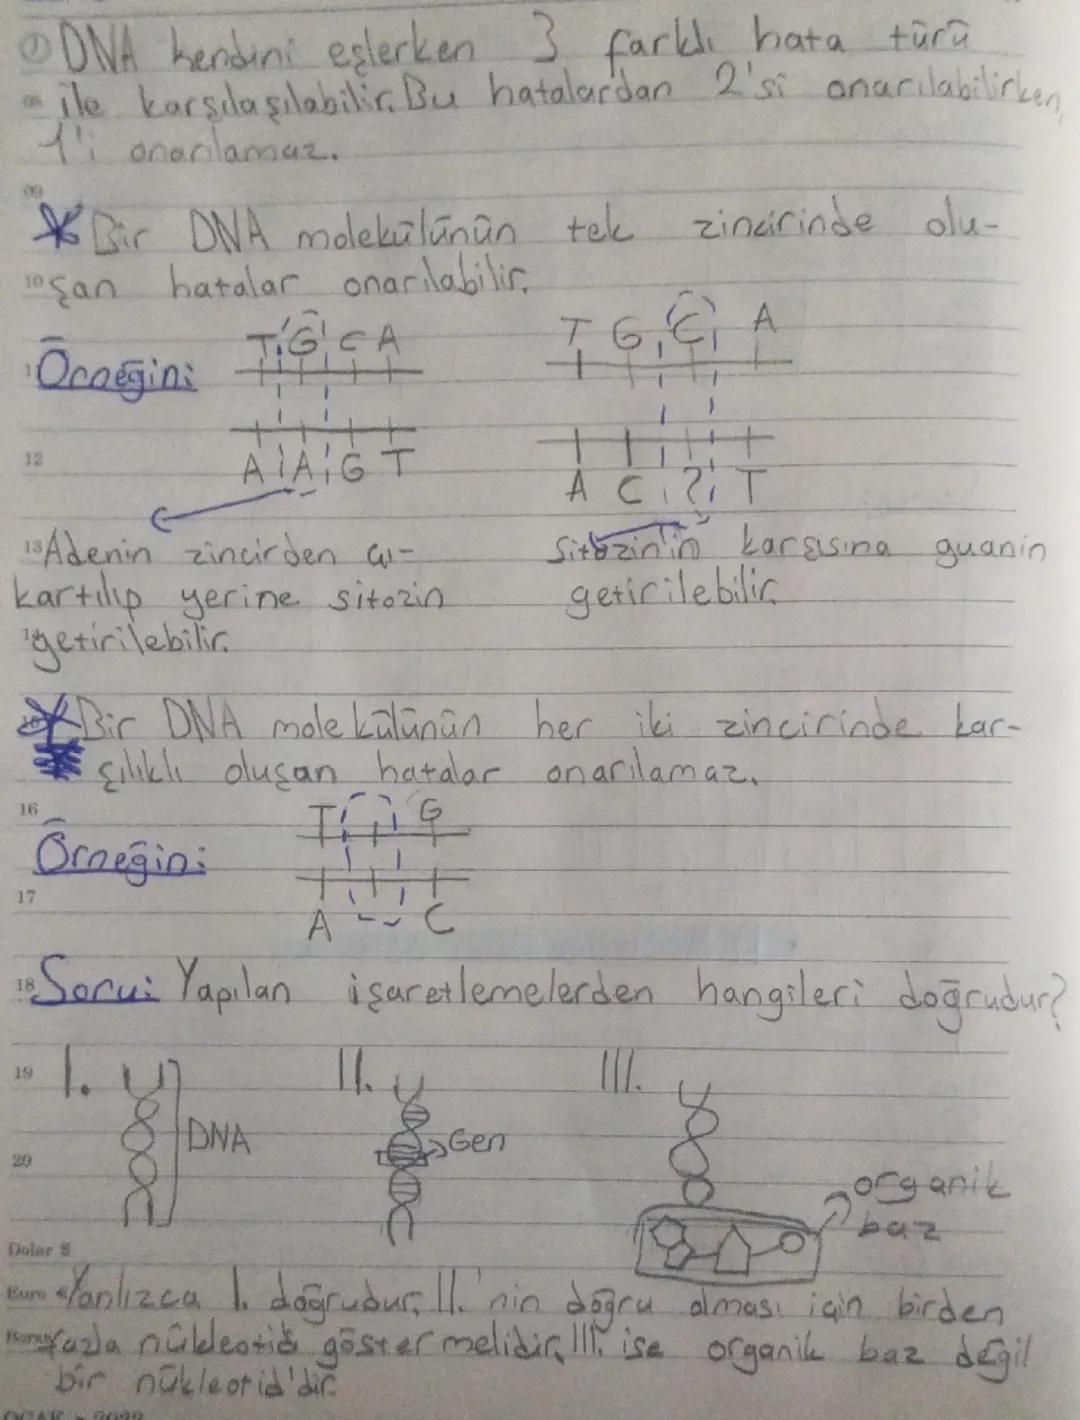 ① DNA kendini eşlerken 3 farklı hata türü
08 ile karşılaşılabilir. Bu hatalardan 2'si onarılabilirken,
1'i onarılamaz.
09
* Bir DNA molekülünün tek zincirinde olu-
10 şan hatalar onarılabilir.
Örneğin:
T G C A
A A G T
T G C A
A C ? T
12
13 Adenin zincirden çı-
kartılıp yerine sitozin
getirilebilir.
Sitozin'in karşısına guanin
getirilebilir.
* Bir DNA molekülünün her iki zincirinde kar-
şılıklı oluşan hatalar onarılamaz.
16
Örneğin:
T G
A C
17
18 Soru: Yapılan işaretlemelerden hangileri doğrudur?
19
I. DNA
II. Gen
III. organik
baz
20
Dolar $
Euro € Yanlızca I. doğrudur, II.'nin doğru olması için birden
fazla nükleotid göstermelidir, III. ise organik baz değil
bir nükleotid'dir.
OCAK • 2022